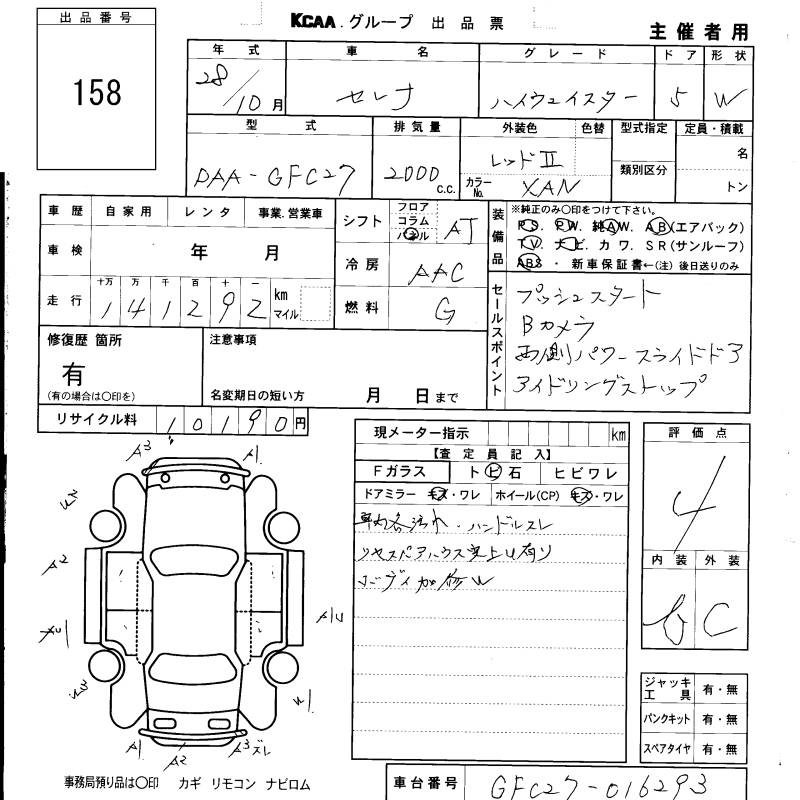 出品番号
158
KCAA.グループ 出品票
主催者用
年式 車名 グレード ドア 形状
28/10月 セレナ ハイウェイスター 5 W
型式 排気量 外装色 色替 型式指定 定員・積載
DAA-GFC27 2000c.c. レッドII 名
カラーNo. XAN 類別区分 トン
車歴 自家用 レンタ 事業.営業車
車検 年 月
走行 十万 万 千 百 十 一
1 4 1 2 9 2 km マイル
シフト フロア コラム パネル AT
冷房 AAC
燃料 G
装備品
※純正のみ〇印をつけて下さい。
P.S. P.W. 純A.W. A.B(エアバック)
T.V. ナビ. カワ. SR(サンルーフ)
ABS ・ 新車保証書←(注)後日送りのみ
セールスポイント
プッシュスタート
Bカメラ
両側パワースライドドア
アイドリングストップ
修復歴 箇所
有
(有の場合は〇印を)
注意事項
名変期日の短い方 月 日まで
リサイクル料 10190円
現メーター指示 km
【査定員記入】
Fガラス トビ石 ヒビワレ
ドアミラー キズ・ワレ ホイール(CP) キズ・ワレ
車内各汚れ・ハンドルスレ
リヤスペアハウス突上げ有り
ボディ加修W
評価点
4
内装 外装
b C
ジャッキ工具 有・無
パンクキット 有・無
スペアタイヤ 有・無
A3 A1
W2
A2
W3
A1 A2 A3 ズレ
W1
事務局預り品は〇印 カギ リモコン ナビロム
車台番号 GFC27-016293